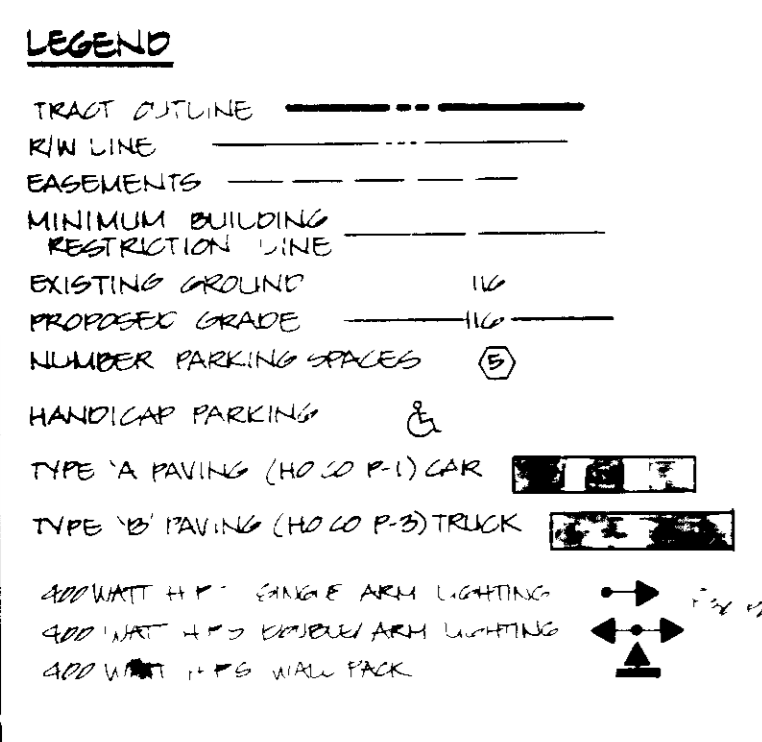 LEGEND
TRACT OUTLINE
R/W LINE
EASEMENTS
MINIMUM BUILDING
RESTRICTION LINE
EXISTING GROUND 116
PROPOSED GRADE 116
NUMBER PARKING SPACES 5
HANDICAP PARKING
TYPE 'A PAVING (HO CO P-1) CAR
TYPE 'B' PAVING (HO CO P-3) TRUCK
400 WATT HPS SINGLE ARM LIGHTING
400 WATT HPS DOUBLE ARM LIGHTING
400 WATT HPS WALL PACK